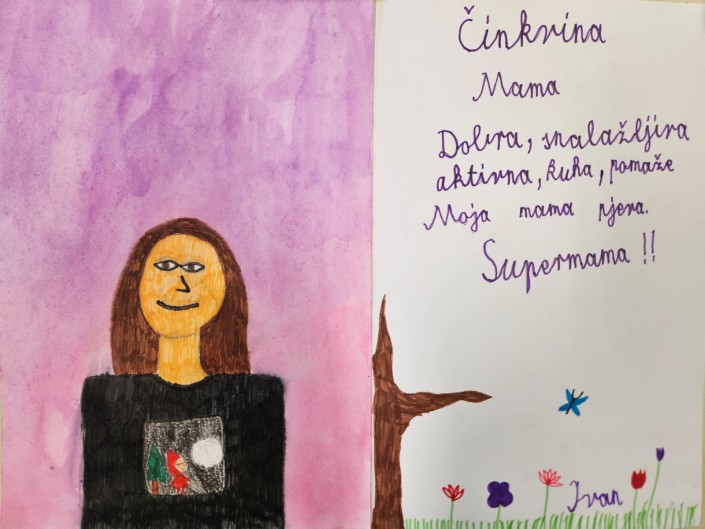 Činkvina
Mama
Dobra, snalažljiva
aktivna, kuha, pomaže
Moja mama pjeva.
Supermama !!
Ivan